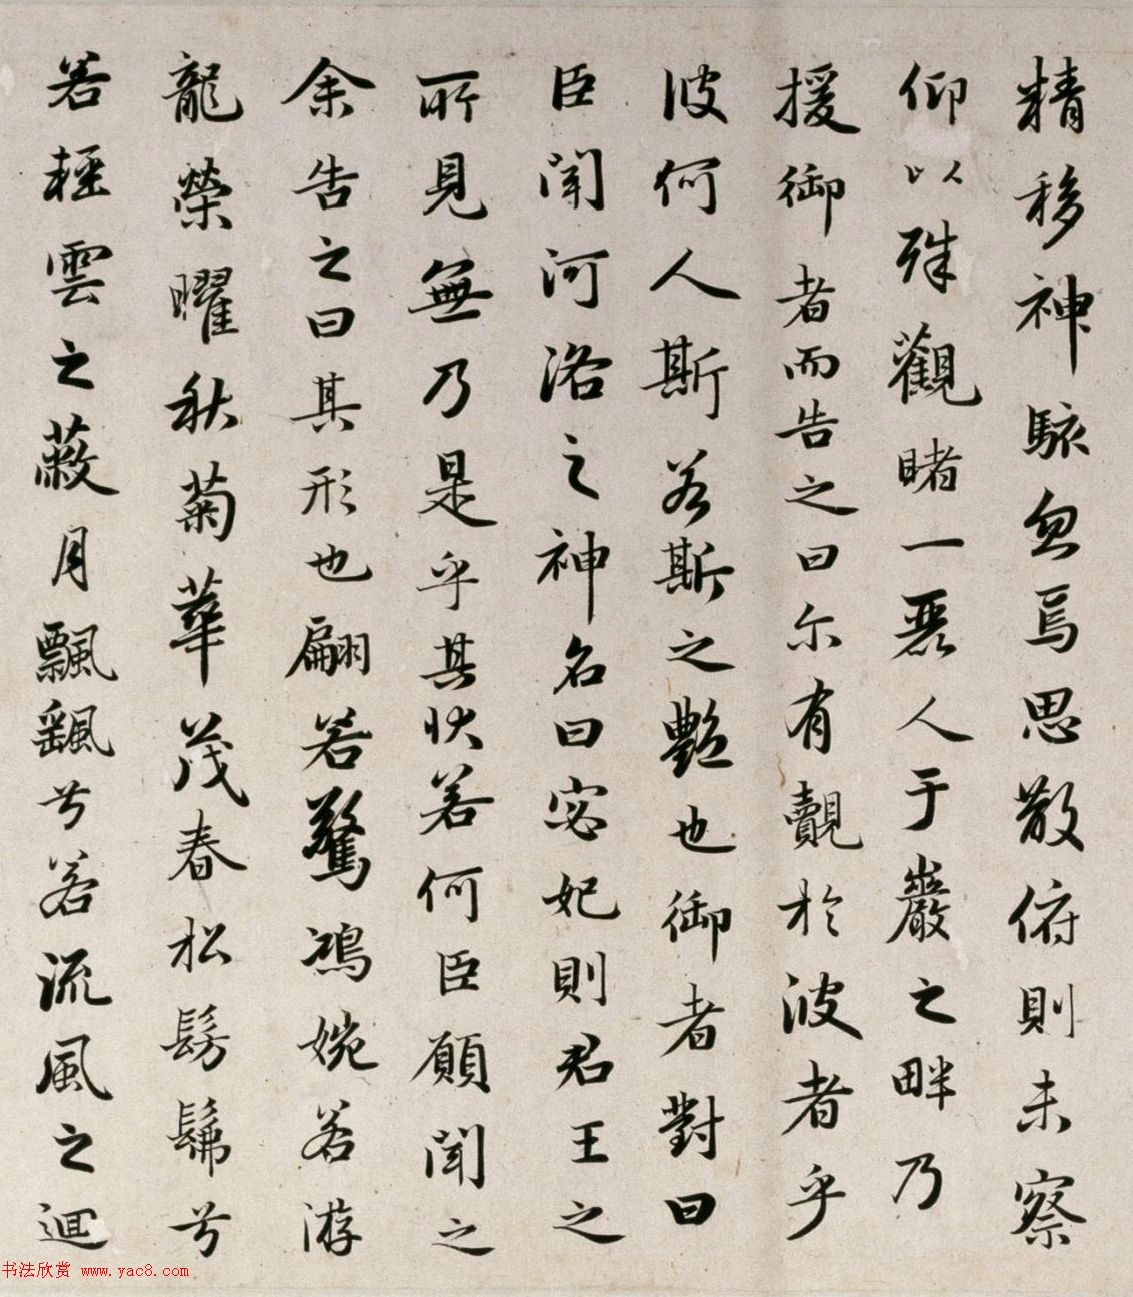 精移神駭忽焉思散俯則未察
仰以殊觀睹一麗人于巖之畔乃
援御者而告之曰尔有覿於彼者乎
彼何人斯若斯之艷也御者對曰
臣聞河洛之神名曰宓妃則君王之
所見無乃是乎其狀若何臣願聞之
余告之曰其形也翩若驚鴻婉若游
龍榮曜秋菊華茂春松髣髴兮
若輕雲之蔽月飄颻兮若流風之迴
书法欣赏 www.yac8.com